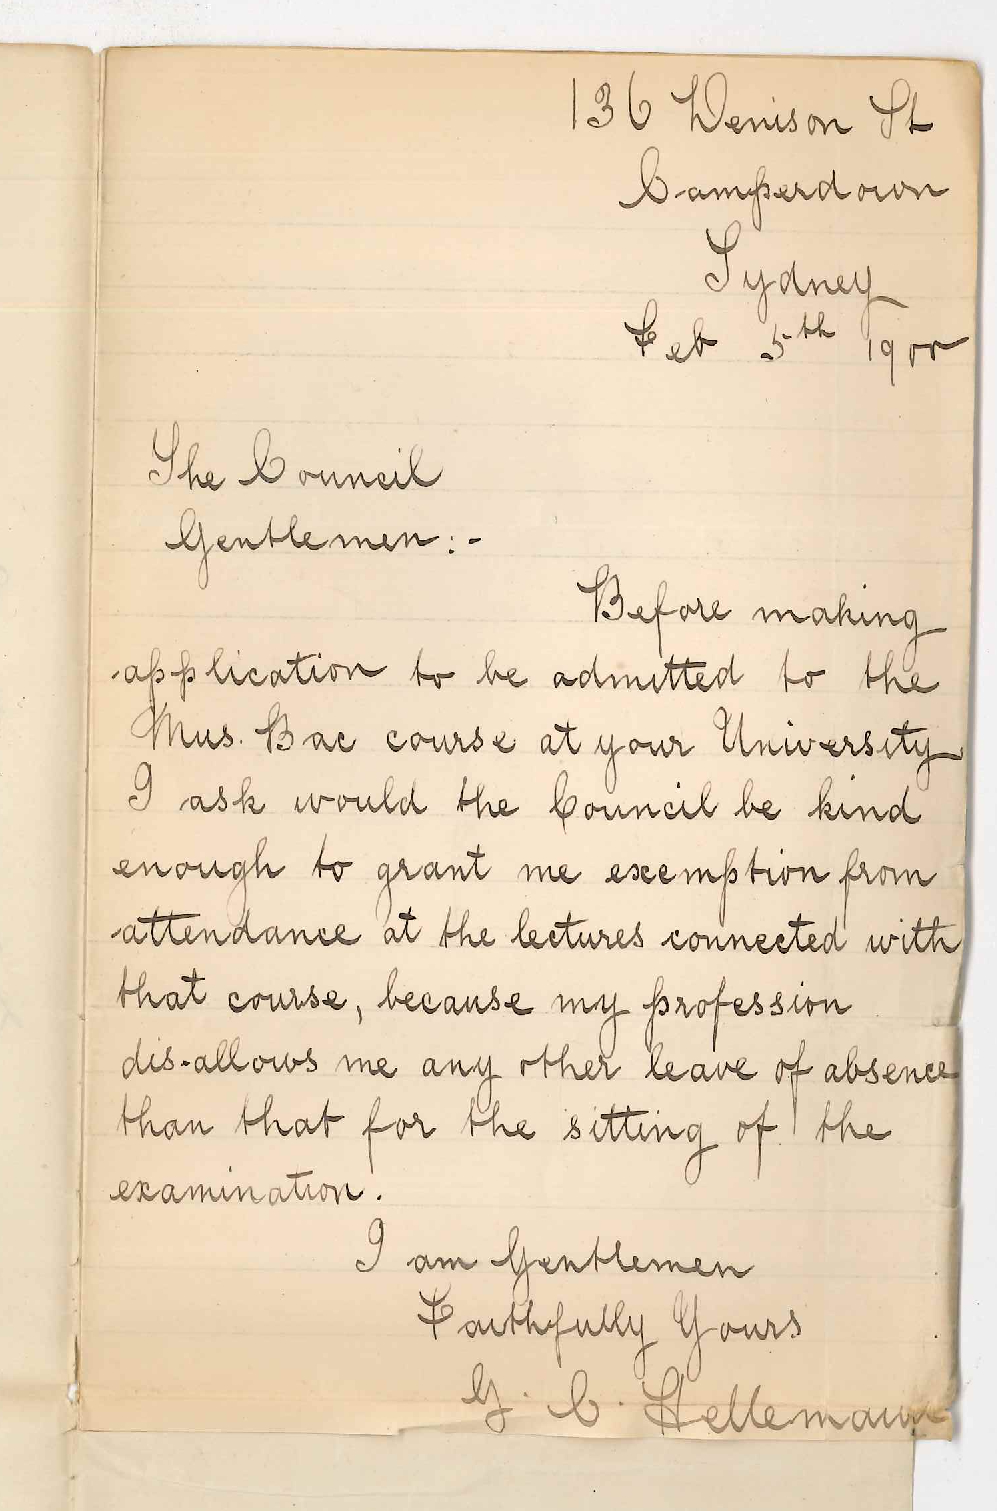 136 Denison St
Camperdown
Sydney
Feb 5th 1900
The Council
Gentlemen:-
Before making
application to be admitted to the
Mus. Bac course at your University
I ask would the Council be kind
enough to grant me exemption from
attendance at the lectures connected with
that course, because my profession
dis-allows me any other leave of absence
than that for the sitting of the
examination.
I am Gentlemen
Faithfully Yours
G. C.